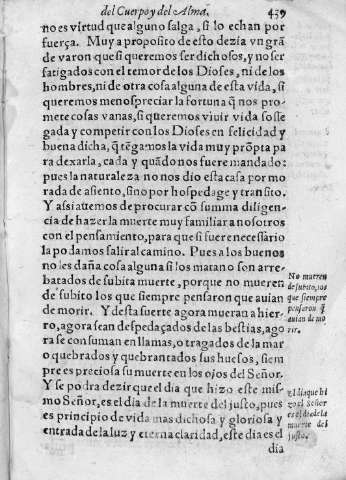 del Cuerpo y del Alma. 439
no es virtud que alguno salga, si lo echan por
fuerça. Muy a proposito de esto dezia vn grã
de varon que si queremos ser dichosos, y no ser
fatigados con el temor de los Dioses, ni de los
hombres, ni de otra cosa alguna de esta vida, si
queremos menospreciar la fortuna q̃ nos pro-
mete cosas vanas, si queremos viuir vida sosse
gada y competir con los Dioses en felicidad y
buena dicha, q̃ tẽgamos la vida muy prõpta pa
ra dexarla, cada y quãdo nos fuere mandado:
pues la naturaleza no nos dio esta casa por mo
rada de asiento, sino por hospedage y transito.
Y assi auemos de procurar cõ summa diligen-
cia de hazer la muerte muy familiar a nosotros
con el pensamiento, para que si fuere necessario
la podamos salir al camino. Pues a los buenos
no les daña cosa alguna si los matan o son arre-
batados de subita muerte, porque no mueren
de subito los que siempre pensaron que auian
de morir. Y desta suerte agora mueran a hier-
ro, agora sean despedaçados de las bestias, ago
ra se consuman en llamas, o tragados de la mar
o quebrados y quebrantados sus huesos, siem
pre es preciosa su muerte en los ojos del Señor.
Y se podra dezir que el dia que hizo este mis-
mo Señor, es el dia de la muerte del justo, pues
es principio de vida mas dichosa y gloriosa y
entrada de la luz y eterna claridad, este dia es el
dia
No mueren
de subito, los
que siempre
pensaron q̃
auian de mo
rir.
El dia que hi
zo el Señor
es el dia de la
muerte del
justo.